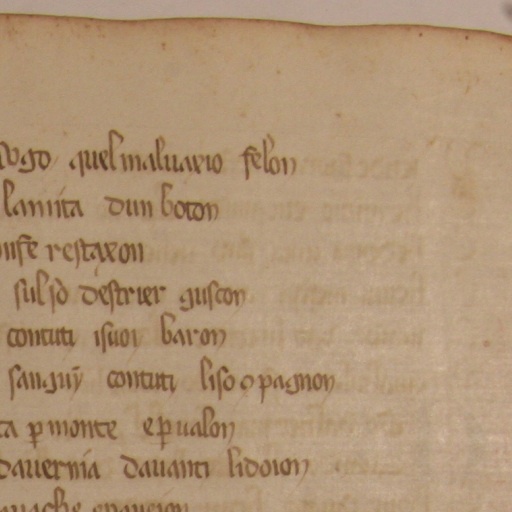 ugo quel maluaxio felon
la mita dun boton
restaxon
sul so destrier guscon
contuti isuoi baron
sanguī contuti li so ꝯpagnon
ta ꝑ monte e ꝑ ualon
dauernia dauanti li doion